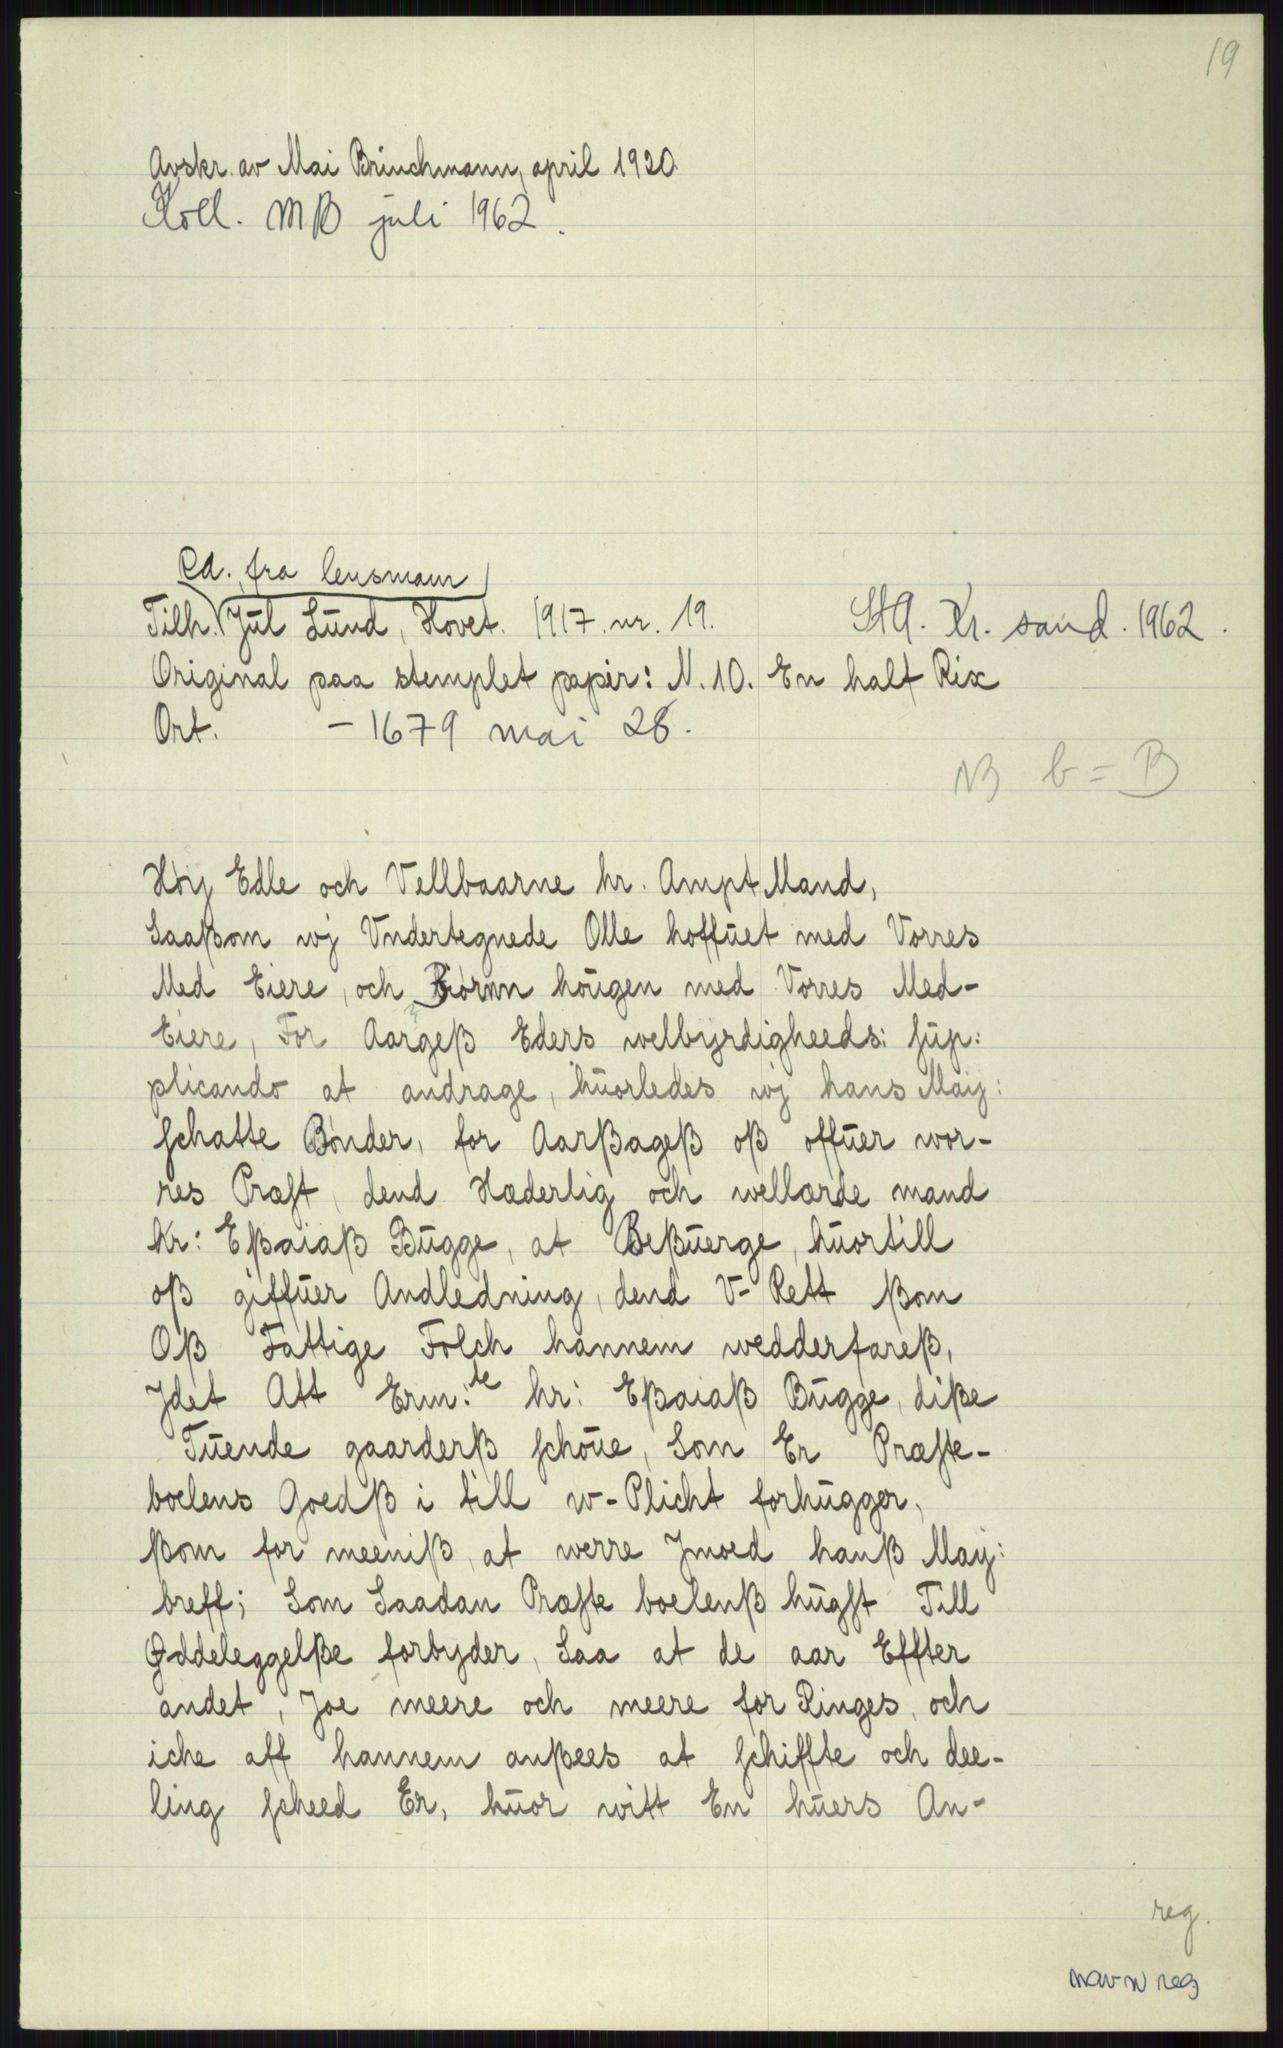 19
Avskr. av Mai Brinchmann, april 1920.
Koll. MB juli 1962.
Ed. fra lensmann
Tilh. Jul Lund, Hovet. 1917. nr. 19.
StA. Kr. sand. 1962.
Original paa stemplet papir: N. 10. En halt Rix
Ort. - 1679 mai 28.
NB b = B
Höy Edle och Vellbaarne hr. Ampt Mand,
Saaßom wj Vndertegnede Olle hoffuet med Vorres
Med Eiere, och Biörnn hougen med Vorres Med-
Eiere, For Aargeß Eders welbyrdigheeds: sup:
plicando at andrage, huorledes wj hans May:
schatte Bönder, for Aarßageß oß offuer wor-
res Præst, dend Hæderlig och wellærde mand
hr: Eßaiaß Bugge, at Beßuerge, huortill
oß giffuer Andledning, dend V-Rett ßom
Oß Fattige Folch hannem wedderfareß,
Jdet Att Erm:te hr: Eßaiaß Bugge, diße
Tuende gaarderß schoue, Som Er Præste-
boelens Goedß i till w-Plicht forhugger,
ßom for meeniß, at werre Jmoed hanß May:
breff; Som Saadan Præste boelenß hugst Till
Øddeleggelße forbyder, Saa at de aar Effter
andet, Joe meere och meere for Ringes, och
iche aff hannem anßees at schiffte och dee-
ling scheed Er, huor witt En huers An-
reg.
navn reg